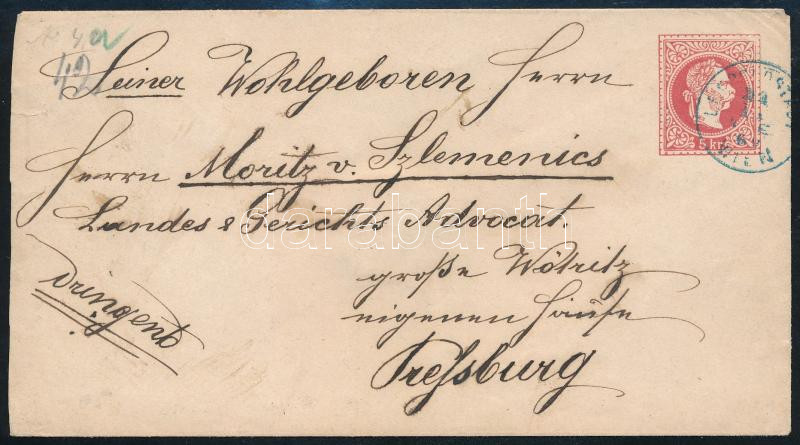 42
Seiner Wohlgeboren Herrn
Herrn Moritz v. Szlemenics
Landes & Gerichts Advocat.
große Wötritz
eigenen Hause
Pressburg
Dringend
5 kr
WIEN
darabanth